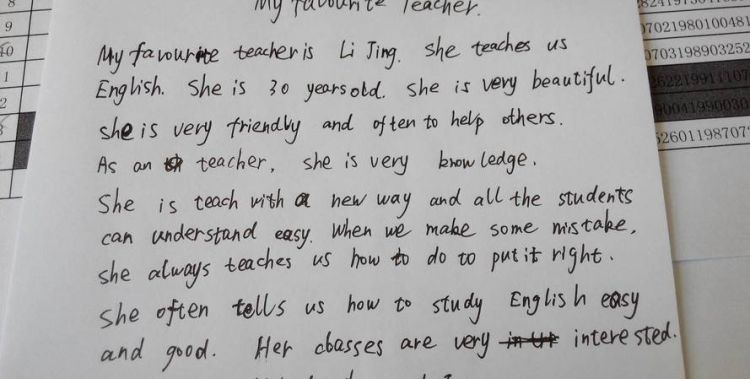 My favourite Teacher.
My favourite teacher is Li Jing. She teaches us
English. She is 30 years old. She is very beautiful.
she is very friendly and often to help others.
As an teacher, she is very knowledge.
She is teach with a new way and all the students
can understand easy. When we make some mistake,
she always teaches us how to do to put it right.
She often tells us how to study English easy
and good. Her classes are very interested.
8
9
1
2
07021980100481
0703198903252